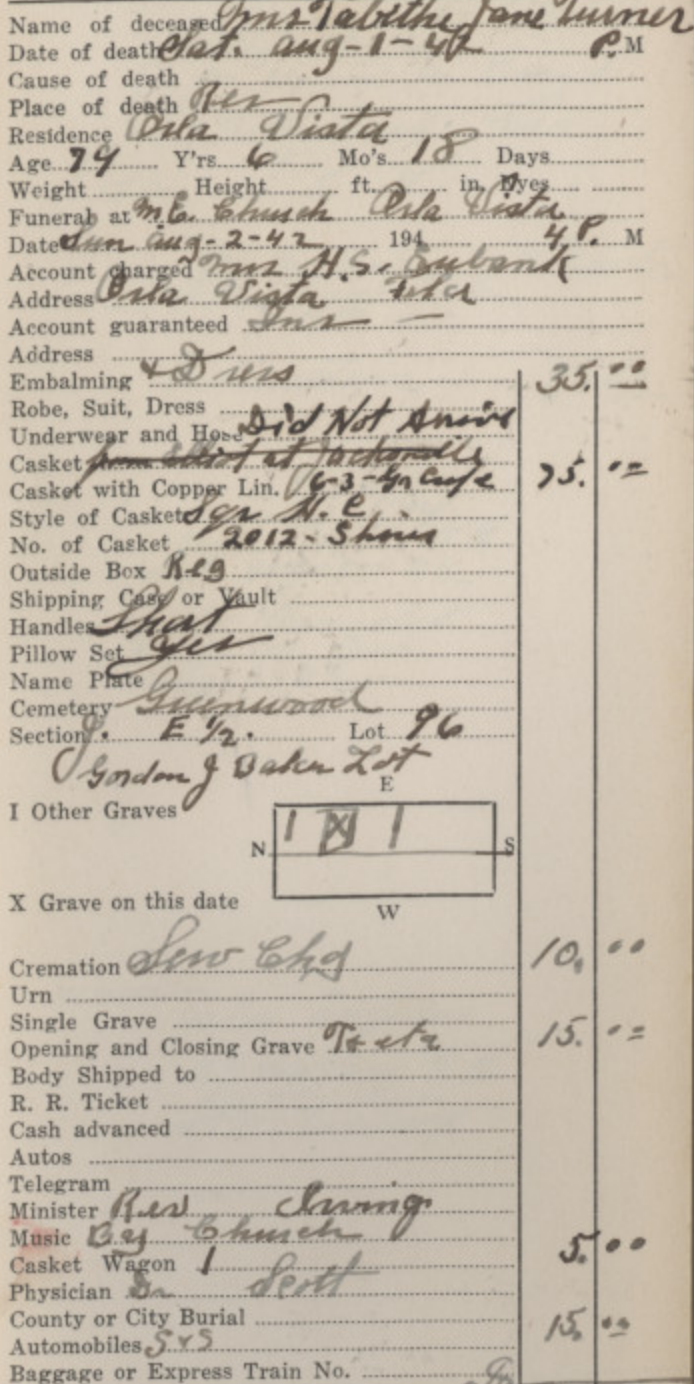 Name of deceased Mrs Tabithe Jane Turner
Date of death Sat. Aug-1-42 P. M
Cause of death
Place of death Res
Residence Orla Vista
Age 79 Y'rs 6 Mo's 18 Days
Weight Height ft. in. Dyes
Funeral at M.E. Church Orla Vista
Date Sun Aug-2-42 194 4 P. M
Account charged Mrs H.S. Eubank
Address Orla Vista
Account guaranteed Ins
Address
Embalming + Dress 35.00
Robe, Suit, Dress
Underwear and Hose Did Not Arrive
Casket from Elliot at Jacksonville
Casket with Copper Lin. 6-3-Gr Crepe 75.00
Style of Casket Sqr H. E.
No. of Casket 2012-
Outside Box Reg
Shipping Case or Vault
Handles Short
Pillow Set Yes
Name Plate
Cemetery Greenwood
Section J. E 1/2. Lot 96
Gordon J Baker Lot
E
I Other Graves
I X I
N S
X Grave on this date
W
Cremation Serv Chg 10.00
Urn
Single Grave
Opening and Closing Grave 15.00
Body Shipped to
R. R. Ticket
Cash advanced
Autos
Telegram
Minister Rev Irving
Music By Church
Casket Wagon 1 5.00
Physician Dr Scott
County or City Burial
Automobiles S+S 15.00
Baggage or Express Train No.